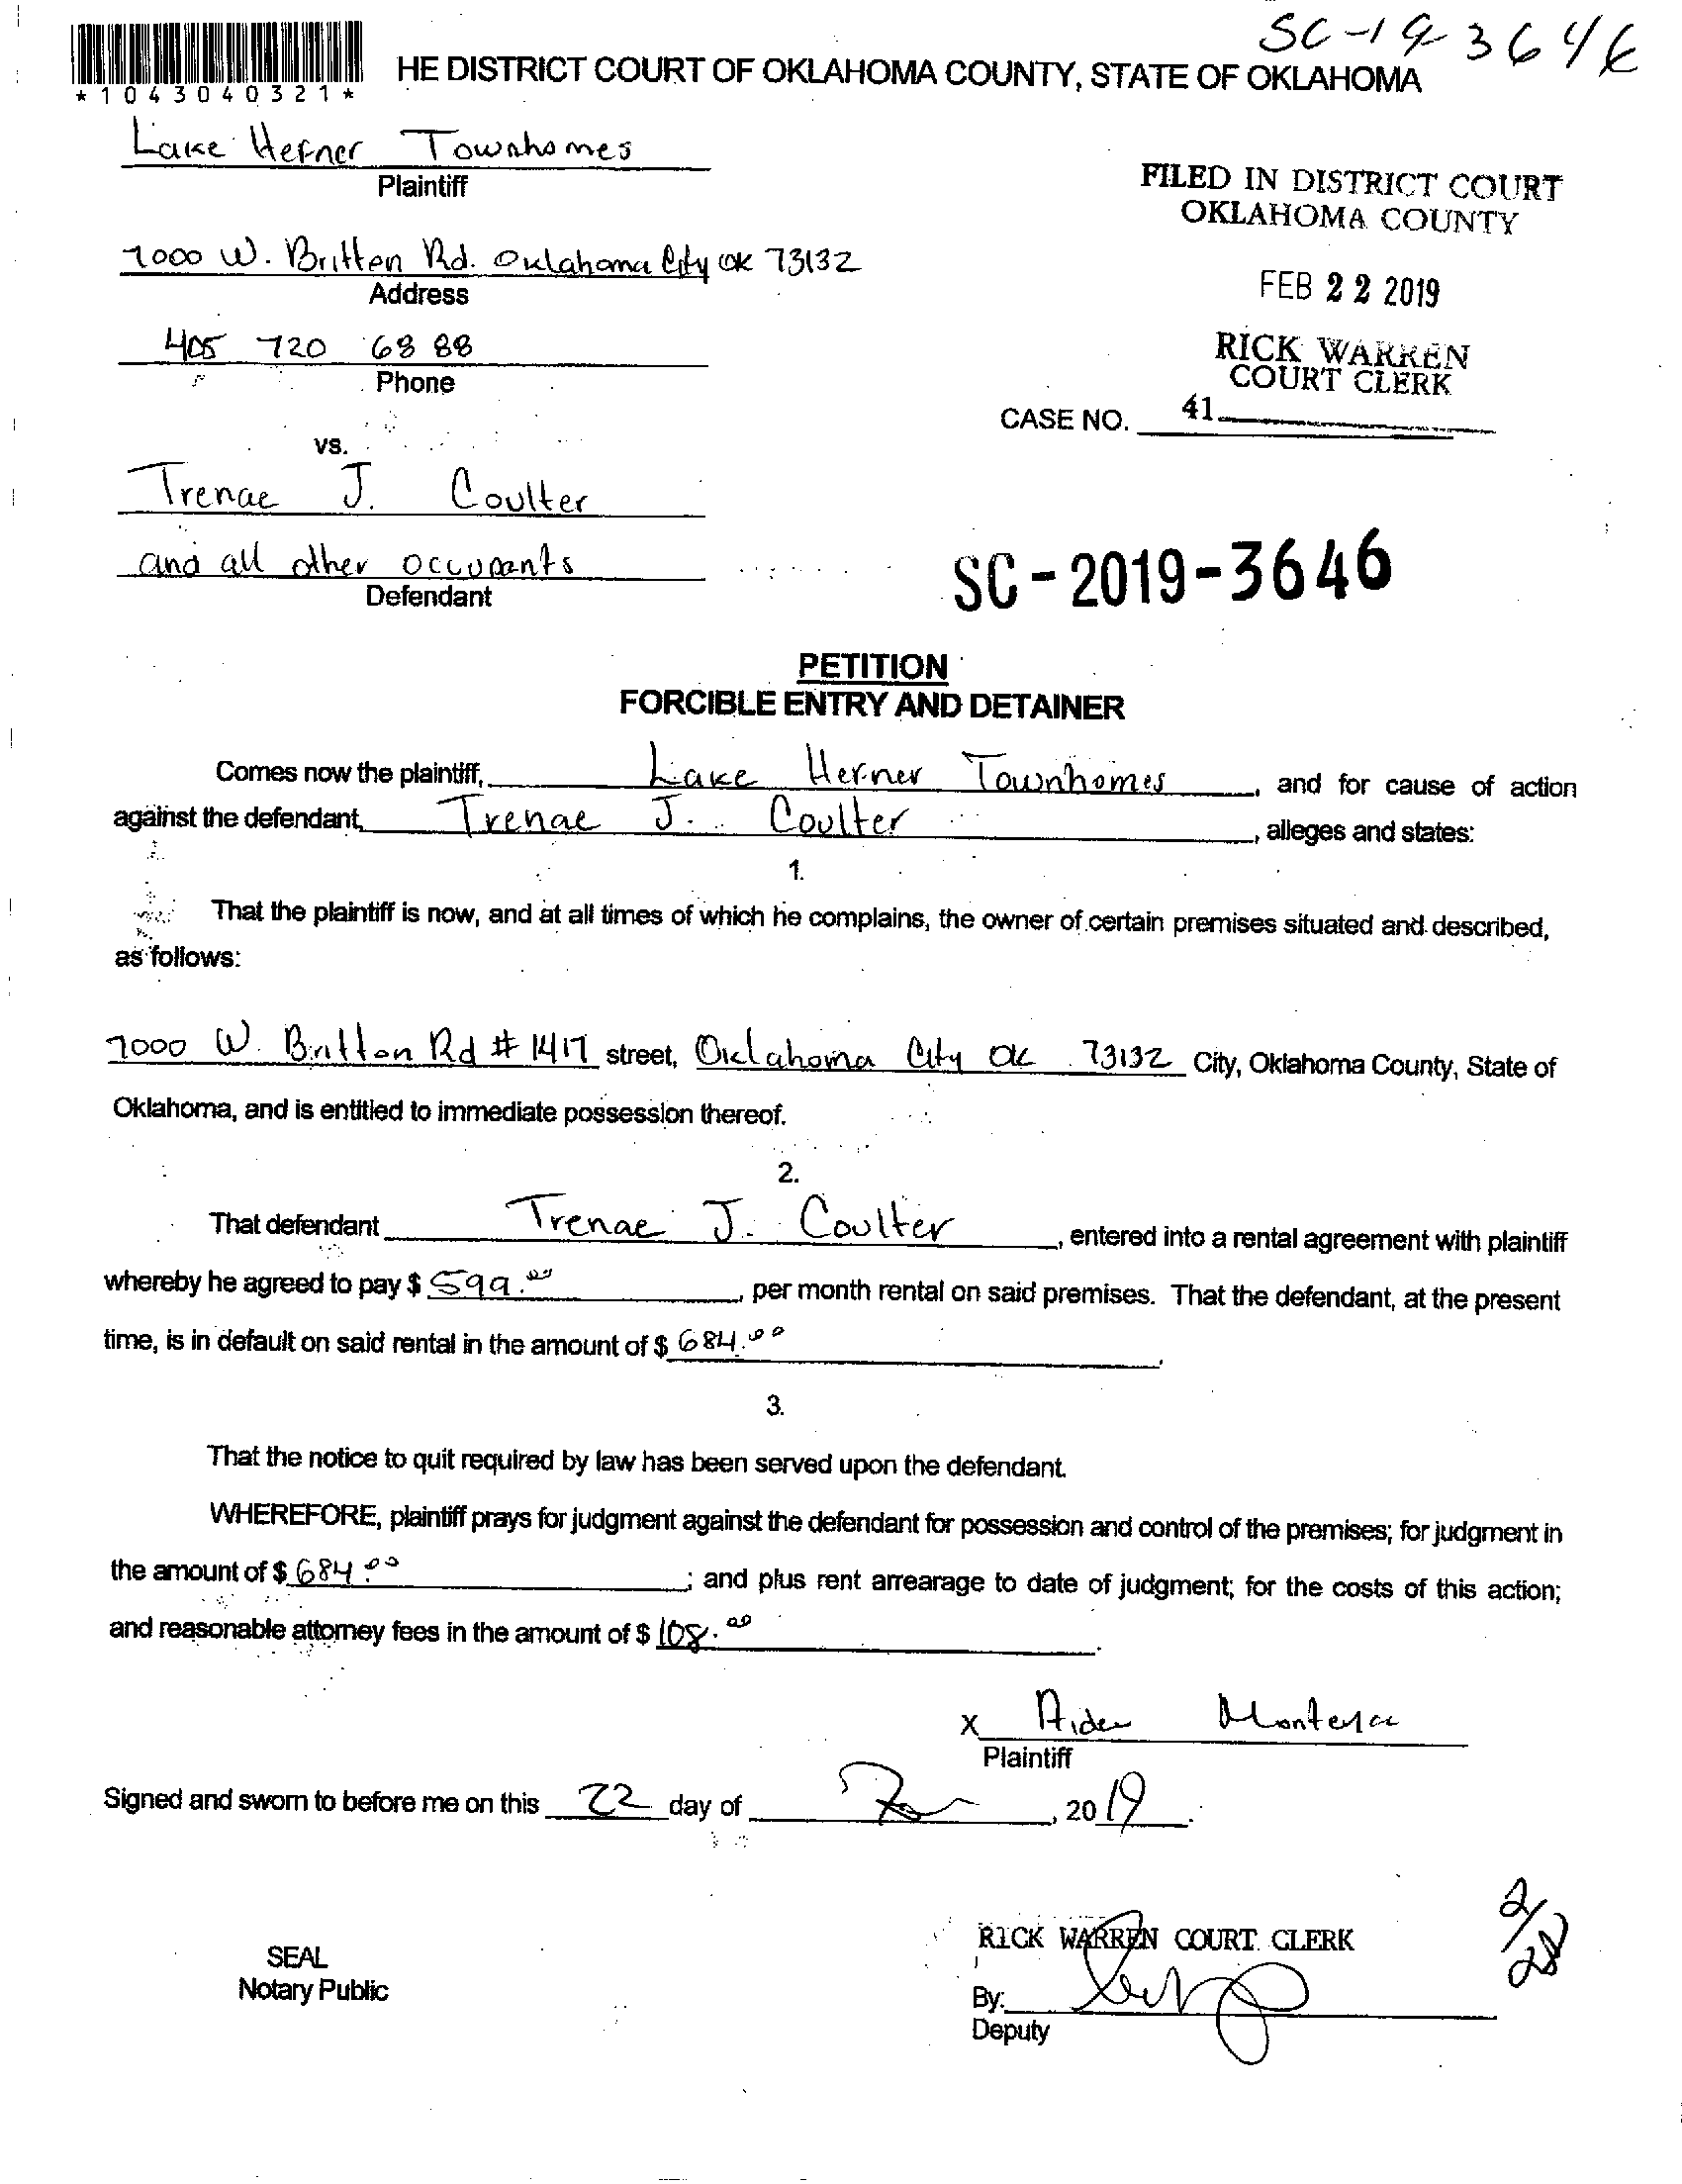 SC-19-3646
HE DISTRICT COURT OF OKLAHOMA COUNTY, STATE OF OKLAHOMA
*1043040321*
Lake Hefner Townhomes
Plaintiff
FILED IN DISTRICT COURT
OKLAHOMA COUNTY
7000 W. Britton Rd. Oklahoma City OK 73132
Address
FEB 22 2019
405 720 6888
Phone
RICK WARREN
COURT CLERK
CASE NO. 41
vs.
Trenae J. Coulter
and all other occupants
Defendant
SC-2019-3646
PETITION
FORCIBLE ENTRY AND DETAINER
Comes now the plaintiff, Lake Hefner Townhomes, and for cause of action
against the defendant, Trenae J. Coulter, alleges and states:
1.
That the plaintiff is now, and at all times of which he complains, the owner of certain premises situated and described,
as follows:
7000 W. Britton Rd # 1417 street, Oklahoma City OK 73132 City, Oklahoma County, State of
Oklahoma, and is entitled to immediate possession thereof.
2.
That defendant Trenae J. Coulter, entered into a rental agreement with plaintiff
whereby he agreed to pay $ 599.00, per month rental on said premises. That the defendant, at the present
time, is in default on said rental in the amount of $ 684.00.
3.
That the notice to quit required by law has been served upon the defendant.
WHEREFORE, plaintiff prays for judgment against the defendant for possession and control of the premises; for judgment in
the amount of $ 684.00; and plus rent arrearage to date of judgment; for the costs of this action;
and reasonable attorney fees in the amount of $ 108.00.
X Aide
Plaintiff
Signed and sworn to before me on this 22 day of , 2019.
2/28
RICK WARREN COURT CLERK
SEAL
Notary Public
By:
Deputy